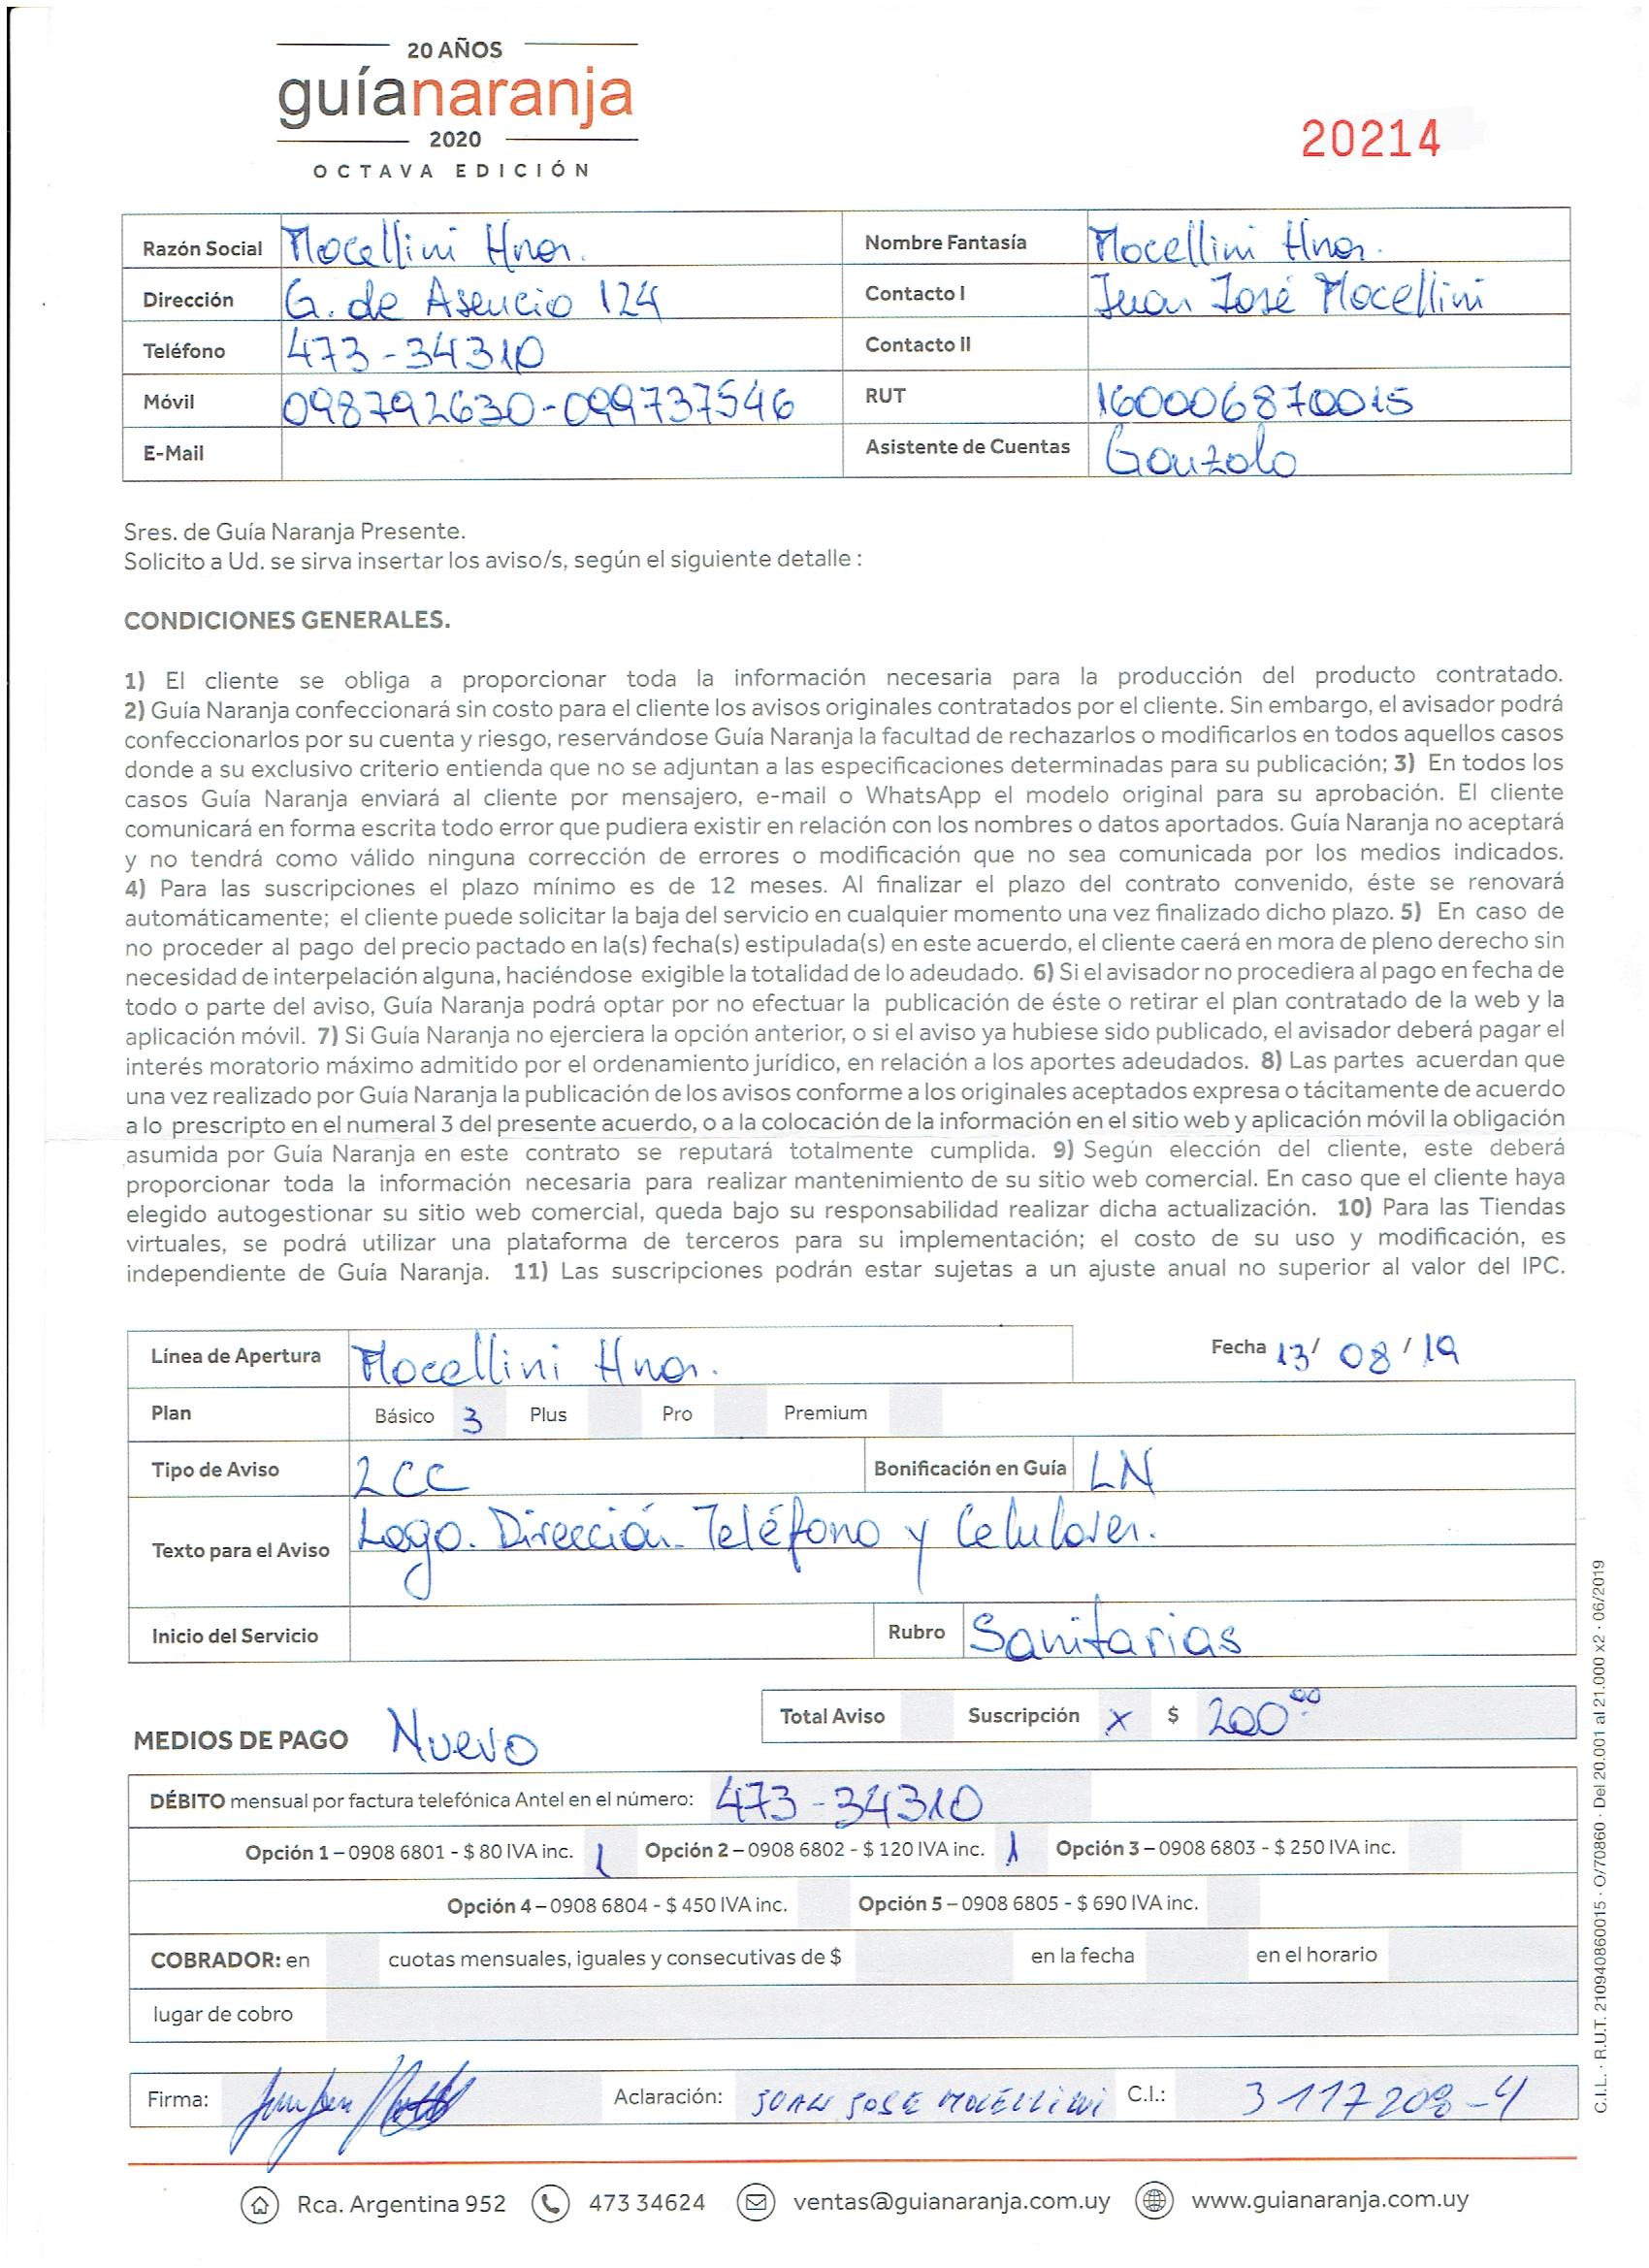 20 AÑOS
guíanaranja
2020
OCTAVA EDICIÓN
20214
Razón Social Mocellini Hnos. Nombre Fantasía Mocellini Hnos.
Dirección G. de Asencio 124 Contacto I Juan José Mocellini
Teléfono 473-34310 Contacto II
Móvil 098792630-099737546 RUT 160006870015
E-Mail Asistente de Cuentas Gonzalo
Sres. de Guía Naranja Presente.
Solicito a Ud. se sirva insertar los aviso/s, según el siguiente detalle :
CONDICIONES GENERALES.
1) El cliente se obliga a proporcionar toda la información necesaria para la producción del producto contratado.
2) Guía Naranja confeccionará sin costo para el cliente los avisos originales contratados por el cliente. Sin embargo, el avisador podrá
confeccionarlos por su cuenta y riesgo, reservándose Guía Naranja la facultad de rechazarlos o modificarlos en todos aquellos casos
donde a su exclusivo criterio entienda que no se adjuntan a las especificaciones determinadas para su publicación; 3) En todos los
casos Guía Naranja enviará al cliente por mensajero, e-mail o WhatsApp el modelo original para su aprobación. El cliente
comunicará en forma escrita todo error que pudiera existir en relación con los nombres o datos aportados. Guía Naranja no aceptará
y no tendrá como válido ninguna corrección de errores o modificación que no sea comunicada por los medios indicados.
4) Para las suscripciones el plazo mínimo es de 12 meses. Al finalizar el plazo del contrato convenido, éste se renovará
automáticamente; el cliente puede solicitar la baja del servicio en cualquier momento una vez finalizado dicho plazo. 5) En caso de
no proceder al pago del precio pactado en la(s) fecha(s) estipulada(s) en este acuerdo, el cliente caerá en mora de pleno derecho sin
necesidad de interpelación alguna, haciéndose exigible la totalidad de lo adeudado. 6) Si el avisador no procediera al pago en fecha de
todo o parte del aviso, Guía Naranja podrá optar por no efectuar la publicación de éste o retirar el plan contratado de la web y la
aplicación móvil. 7) Si Guía Naranja no ejerciera la opción anterior, o si el aviso ya hubiese sido publicado, el avisador deberá pagar el
interés moratorio máximo admitido por el ordenamiento jurídico, en relación a los aportes adeudados. 8) Las partes acuerdan que
una vez realizado por Guía Naranja la publicación de los avisos conforme a los originales aceptados expresa o tácitamente de acuerdo
a lo prescripto en el numeral 3 del presente acuerdo, o a la colocación de la información en el sitio web y aplicación móvil la obligación
asumida por Guía Naranja en este contrato se reputará totalmente cumplida. 9) Según elección del cliente, este deberá
proporcionar toda la información necesaria para realizar mantenimiento de su sitio web comercial. En caso que el cliente haya
elegido autogestionar su sitio web comercial, queda bajo su responsabilidad realizar dicha actualización. 10) Para las Tiendas
virtuales, se podrá utilizar una plataforma de terceros para su implementación; el costo de su uso y modificación, es
independiente de Guía Naranja. 11) Las suscripciones podrán estar sujetas a un ajuste anual no superior al valor del IPC.
Línea de Apertura Mocellini Hnos. Fecha 13/ 08 / 19
Plan Básico 3 Plus Pro Premium
Tipo de Aviso 2CC Bonificación en Guía LN
Texto para el Aviso Logo. Dirección. Teléfono y Celulares.
Inicio del Servicio Rubro Sanitarias
Total Aviso Suscripción x $ 200⁰⁰
MEDIOS DE PAGO Nuevo
DÉBITO mensual por factura telefónica Antel en el número: 473-34310
Opción 1 – 0908 6801 - $ 80 IVA inc. 1 Opción 2 – 0908 6802 - $ 120 IVA inc. 1 Opción 3 – 0908 6803 - $ 250 IVA inc.
Opción 4 – 0908 6804 - $ 450 IVA inc. Opción 5 – 0908 6805 - $ 690 IVA inc.
COBRADOR: en cuotas mensuales, iguales y consecutivas de $ en la fecha en el horario
lugar de cobro
Firma: Aclaración: JUAN JOSE MOCELLINI C.I.: 3117208-4
Rca. Argentina 952 473 34624 ventas@guianaranja.com.uy www.guianaranja.com.uy
C.I.L. · R.U.T. 210940860015 · O/70860 · Del 20.001 al 21.000 x2 · 06/2019